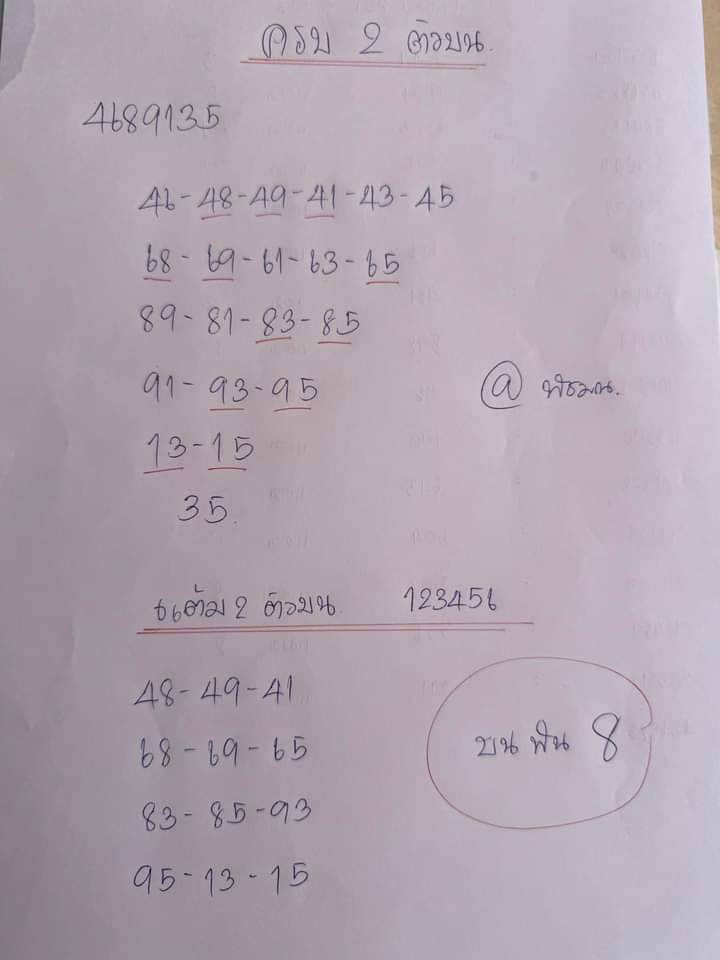 ครบ 2 ตัวบน.
4689135
46-48-49-41-43-45
68-69-61-63-65
89-81-83-85
91-93-95
@ พัชมน.
13-15
35.
แต้ม 2 ตัวบน 123456
48-49-41
68-69-65
บน ฟัน 8
83-85-93
95-13-15